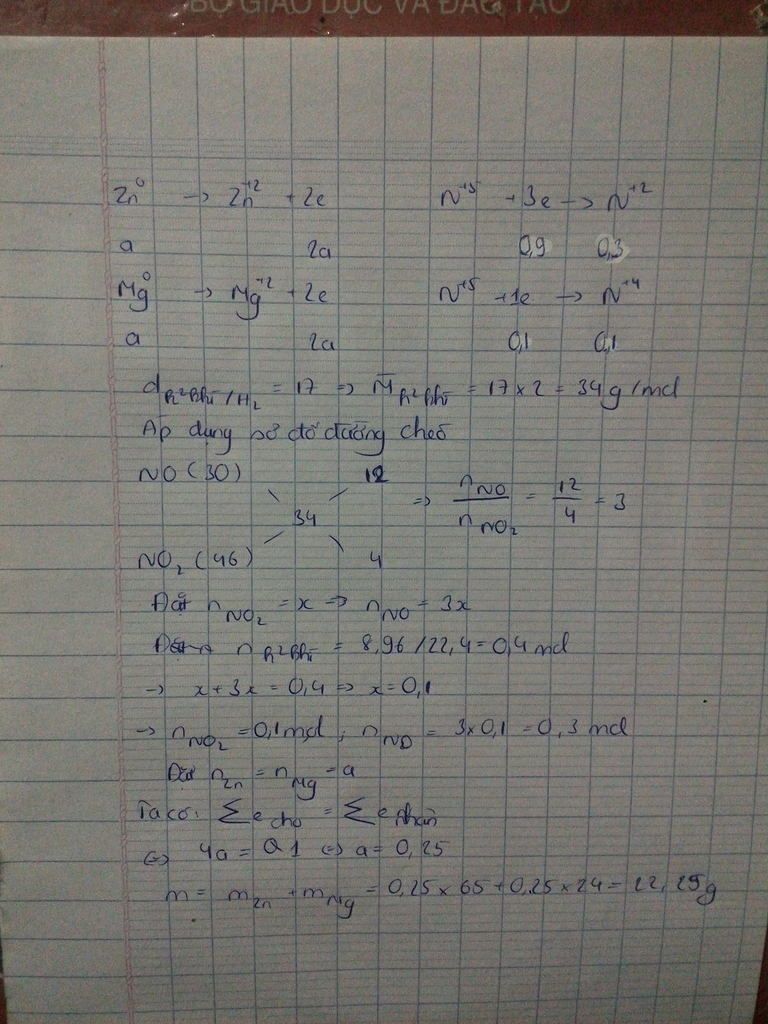 BỘ GIÁO DỤC VÀ ĐÀO TẠO
Zn⁰ → Zn⁺² + 2e N⁺⁵ + 3e → N⁺²
a 2a 0,9 0,3
Mg⁰ → Mg⁺² + 2e N⁺⁵ + 1e → N⁺⁴
a 2a 0,1 0,1
d h² khí / H₂ = 17 => M̄ h² khí = 17 × 2 = 34 g/mol
Áp dụng sơ đồ đường chéo
NO (30) 12
34 => nNO / nNO₂ = 12 / 4 = 3
NO₂ (46) 4
Đặt nNO₂ = x => nNO = 3x
n h² khí = 8,96 / 22,4 = 0,4 mol
→ x + 3x = 0,4 => x = 0,1
→ nNO₂ = 0,1 mol ; nNO = 3 × 0,1 = 0,3 mol
Đặt nZn = nMg = a
Ta có: Σe cho = Σe nhận
<=> 4a = 1 <=> a = 0,25
m = mZn + mMg = 0,25 × 65 + 0,25 × 24 = 22,25g